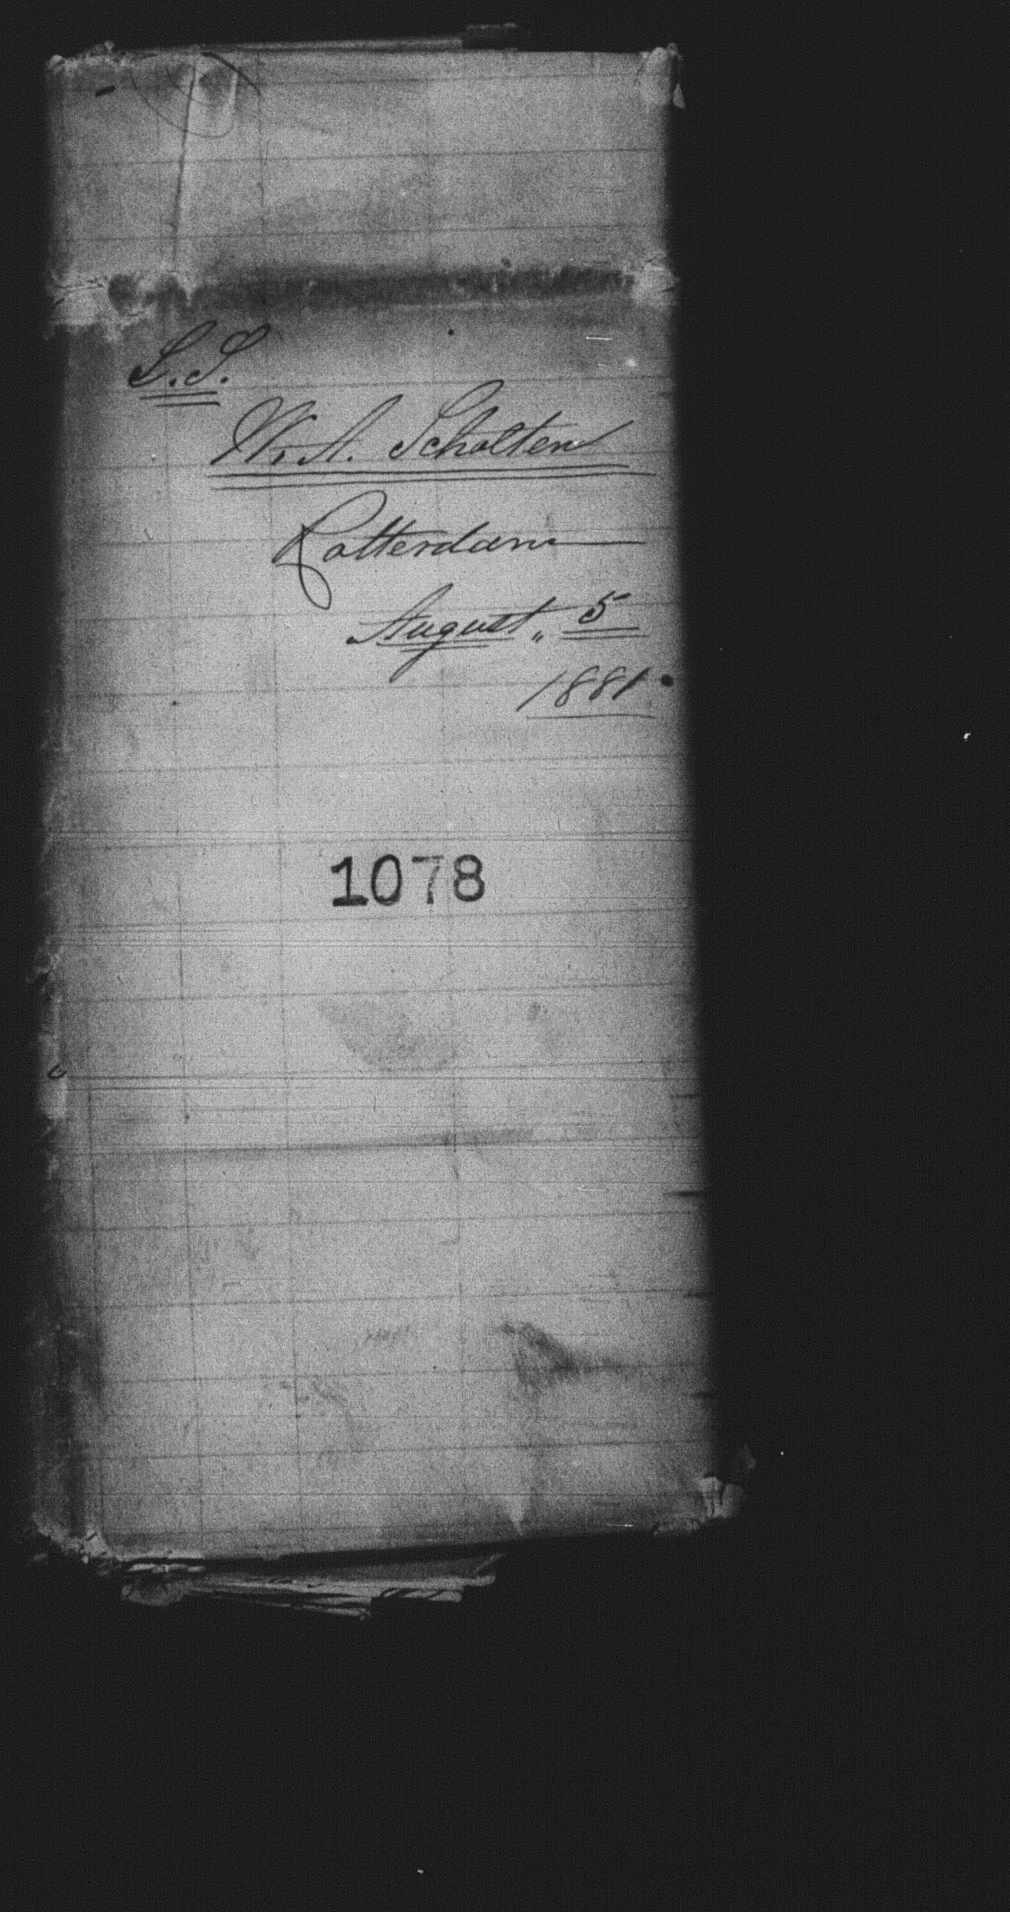 S.S.
W. A. Scholten
Rotterdam
August „ 5
1881.
1078